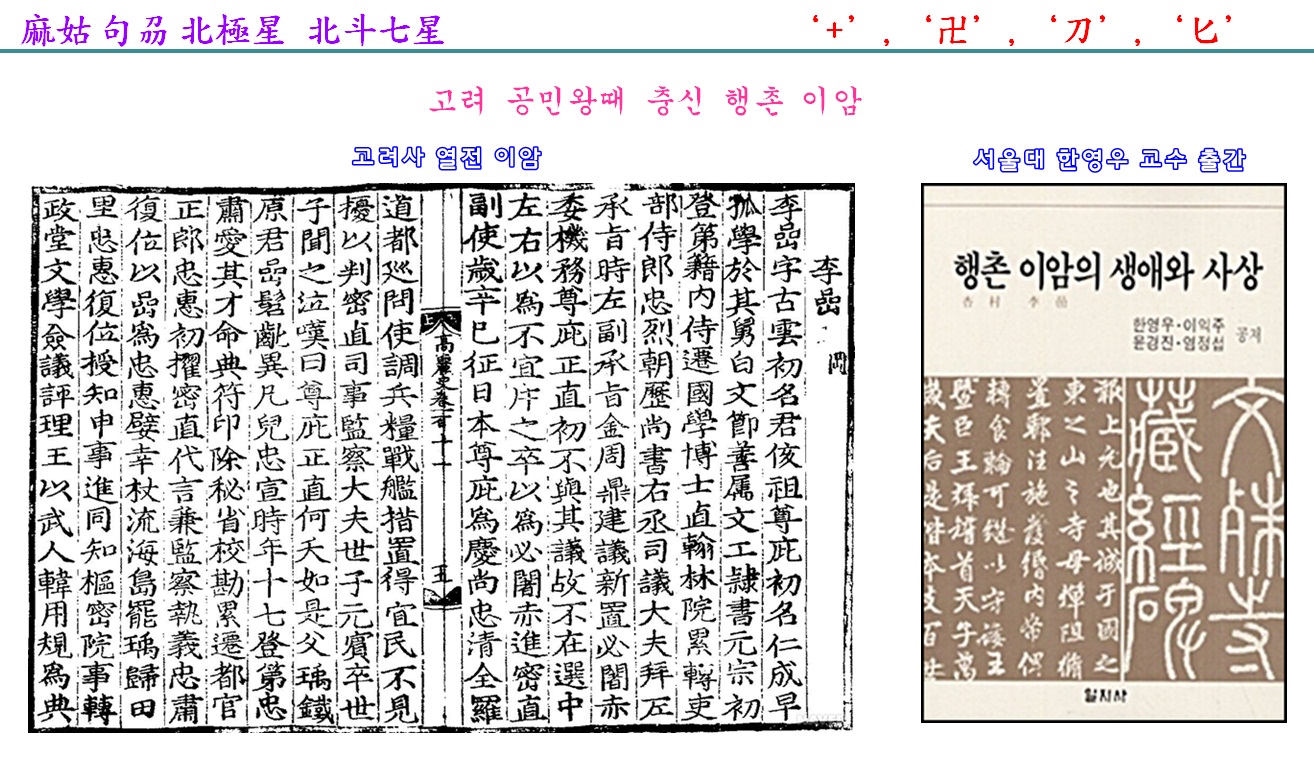 麻姑 句 刕 北極星 北斗七星
‘+’ , ‘卍’ , ‘刀’ , ‘匕’
고려 공민왕때 충신 행촌 이암
고려사 열전 이암
李嵒
李嵒字古雲初名君侅祖尊庇初名仁成早
孤學於其舅白文節善属文工隷書元宗初
登第籍內侍遷國學博士直翰林院累轉吏
部侍郎忠烈朝歷尚書右丞司議大夫拜左
承旨時左副承旨金周鼎建議新置必闍赤
委機務尊庇正直初不與其議故不在選中
左右以爲不宜斥之卒以爲必闍赤進密直
副使歲辛巳征日本尊庇爲慶尚忠清全羅
高麗史卷一百十一 五
道都巡問使調兵糧戰艦措置得宜民不見
擾以判密直司事監察大夫世子元賓卒世
子聞之泣嘆曰尊庇正直何夭如是父瑀鐵
原君嵒髫齔異凡兒忠宣時年十七登第忠
肅愛其才命典符印除秘省校勘累遷都官
正郎忠惠初擢密直代言兼監察執義忠肅
復位以嵒爲忠惠嬖幸杖流海島罷瑀歸田
里忠惠復位授知申事進同知樞密院事轉
政堂文學僉議評理王以武人韓用規爲典
서울대 한영우 교수 출간
행촌 이암의 생애와 사상
杏村 李嵒
한영우·이익주
윤경진·염정섭 공저
文殊寺
藏經碑
報上允也其誠于國之
東之山之寺母
일지사